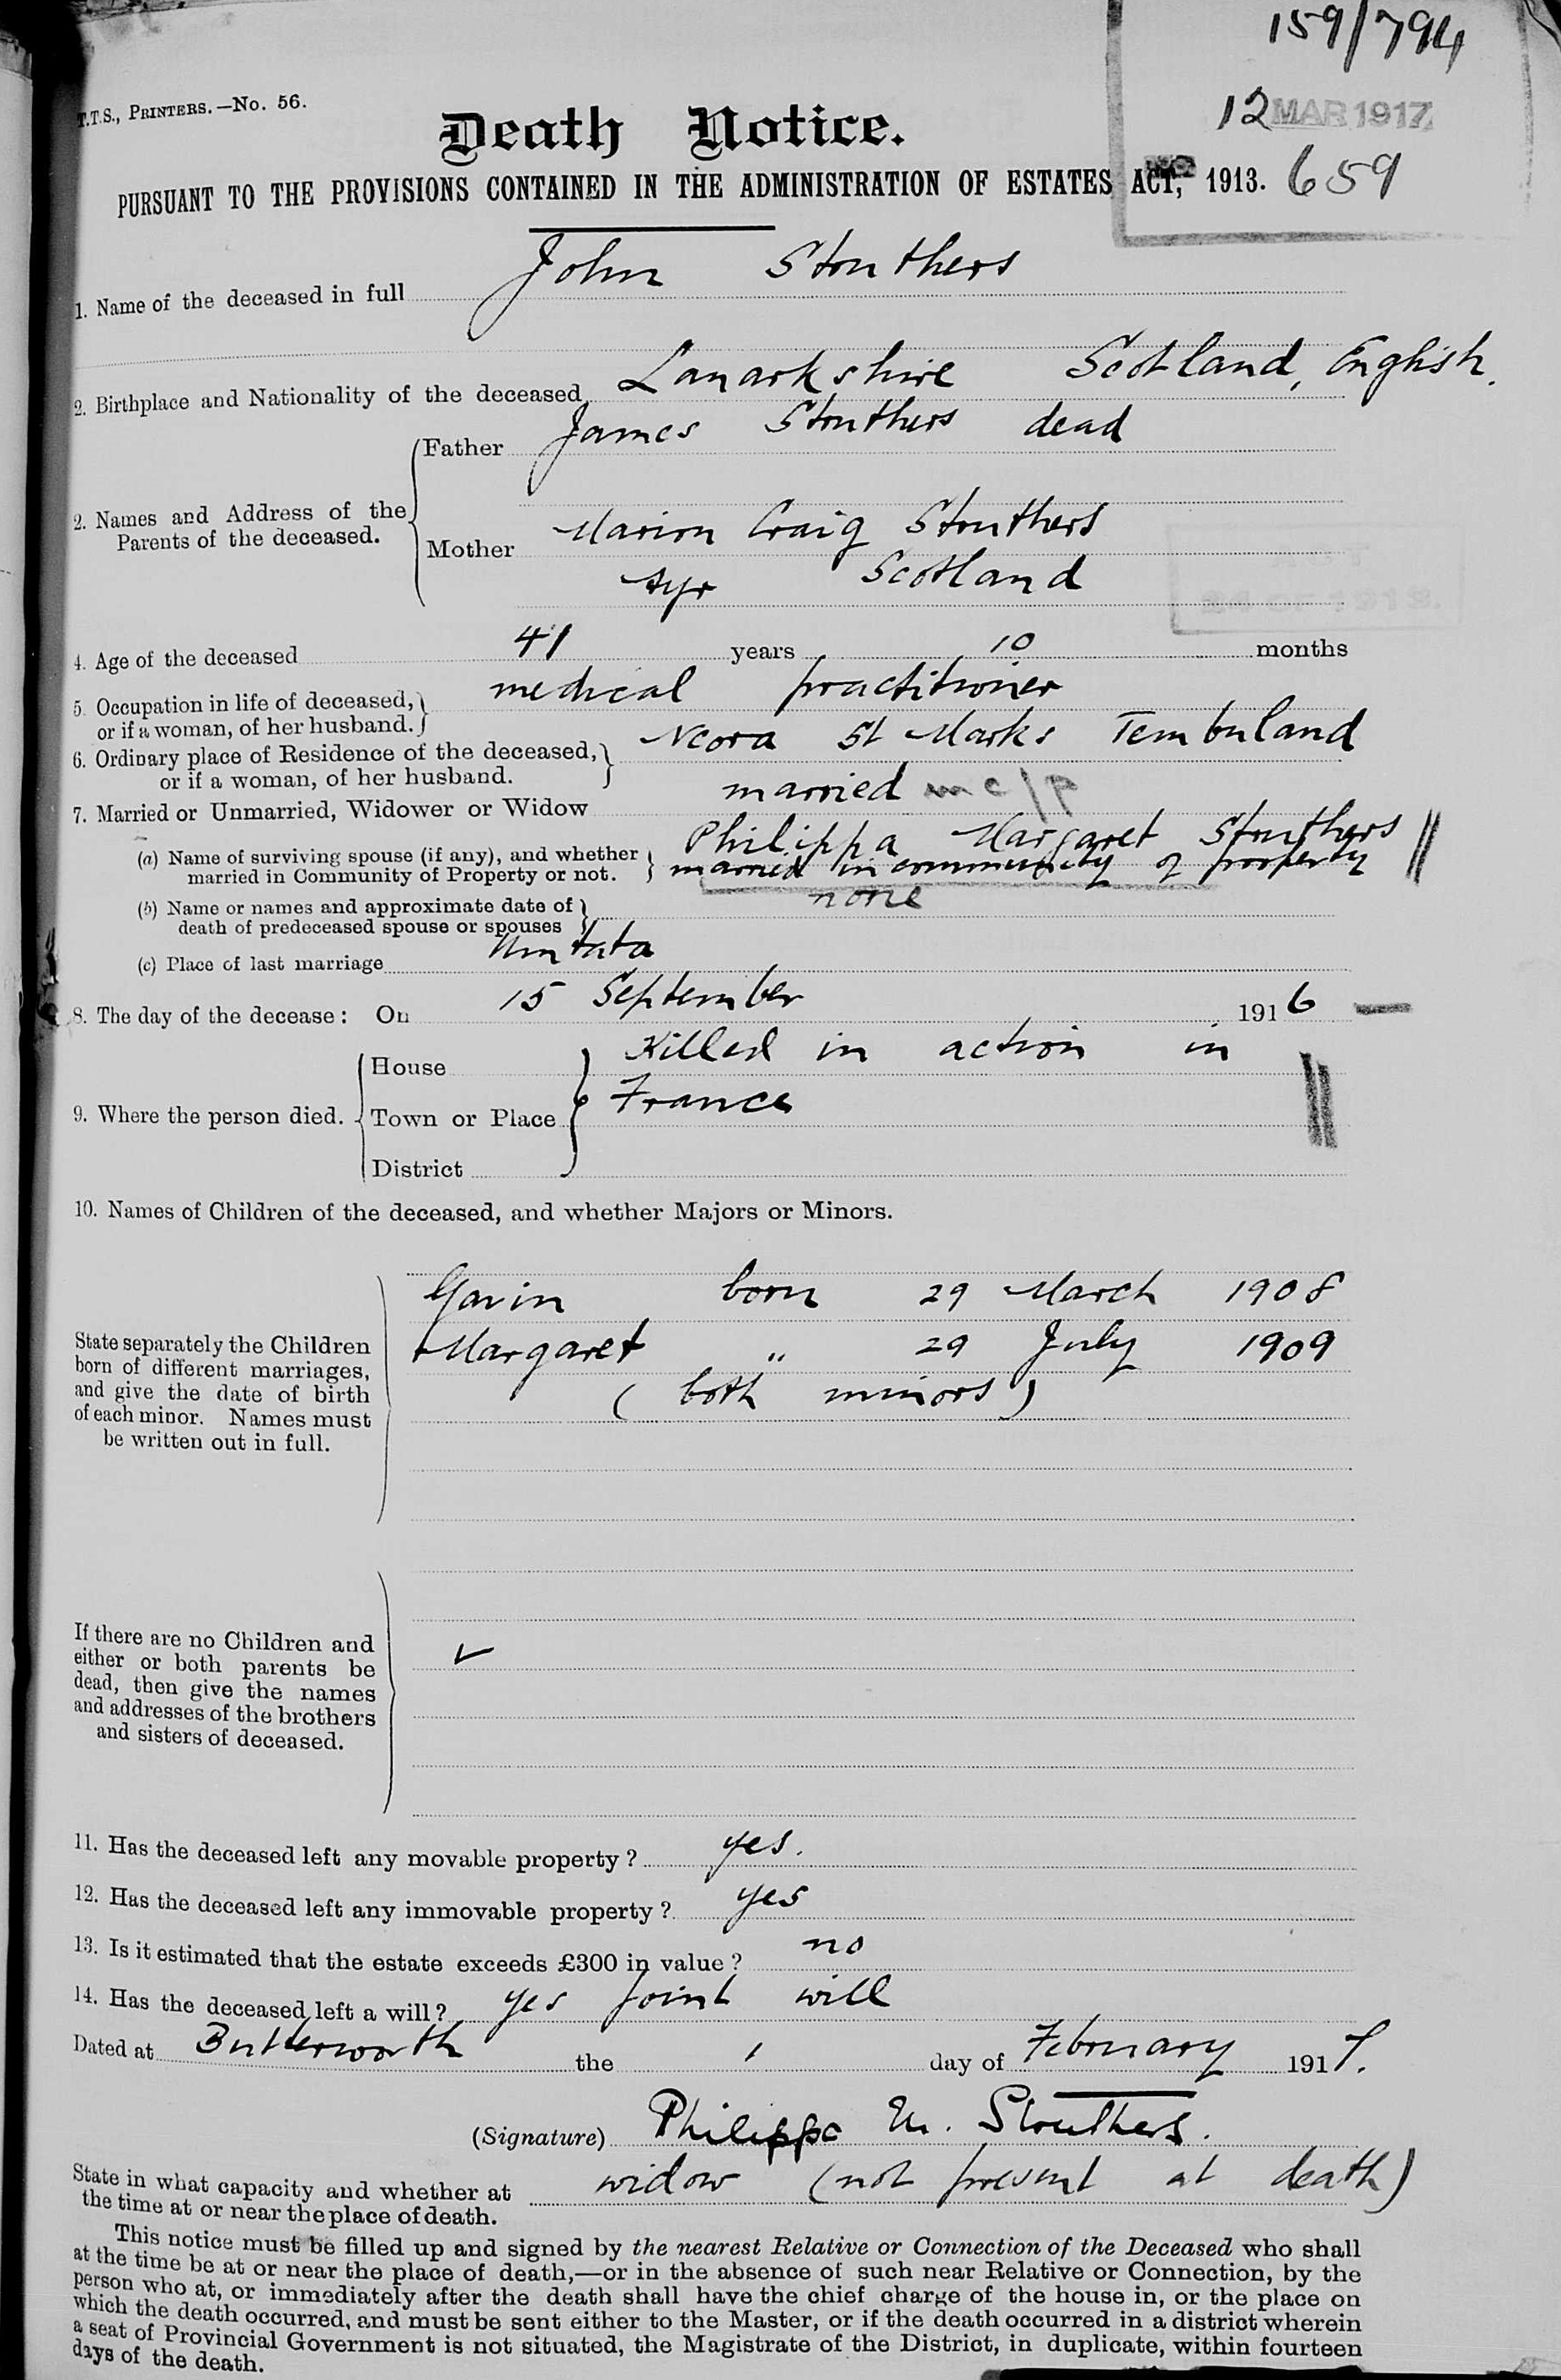 159/794
T.T.S., PRINTERS.—No. 56.
12 MAR 1917
Death Notice.
PURSUANT TO THE PROVISIONS CONTAINED IN THE ADMINISTRATION OF ESTATES ACT, 1913. 659
1. Name of the deceased in full John Struthers
2. Birthplace and Nationality of the deceased Lanarkshire Scotland, English.
2. Names and Address of the Parents of the deceased.
Father James Struthers dead
Mother Marion Craig Struthers
Ayr Scotland
4. Age of the deceased 41 years 10 months
5. Occupation in life of deceased, or if a woman, of her husband. medical practitioner
6. Ordinary place of Residence of the deceased, or if a woman, of her husband. Ncora St Marks Tembuland
7. Married or Unmarried, Widower or Widow married m c/p
(a) Name of surviving spouse (if any), and whether Philippa Margaret Struthers
married in Community of Property or not. married in community of property
(b) Name or names and approximate date of none
death of predeceased spouse or spouses
(c) Place of last marriage Umtata
8. The day of the decease: On 15 September 1916
9. Where the person died.
House Killed in action in
Town or Place France
District
10. Names of Children of the deceased, and whether Majors or Minors.
State separately the Children
born of different marriages,
and give the date of birth
of each minor. Names must
be written out in full.
Gavin born 29 March 1908
Margaret " 29 July 1909
(both minors)
If there are no Children and
either or both parents be
dead, then give the names
and addresses of the brothers
and sisters of deceased.
11. Has the deceased left any movable property? yes.
12. Has the deceased left any immovable property? yes
13. Is it estimated that the estate exceeds £300 in value? no
14. Has the deceased left a will? yes joint will
Dated at Butterworth the 1 day of February 1917.
(Signature) Philippa M. Struthers.
State in what capacity and whether at widow (not present at death)
the time at or near the place of death.
This notice must be filled up and signed by the nearest Relative or Connection of the Deceased who shall
at the time be at or near the place of death,—or in the absence of such near Relative or Connection, by the
person who at, or immediately after the death shall have the chief charge of the house in, or the place on
which the death occurred, and must be sent either to the Master, or if the death occurred in a district wherein
a seat of Provincial Government is not situated, the Magistrate of the District, in duplicate, within fourteen
days of the death.